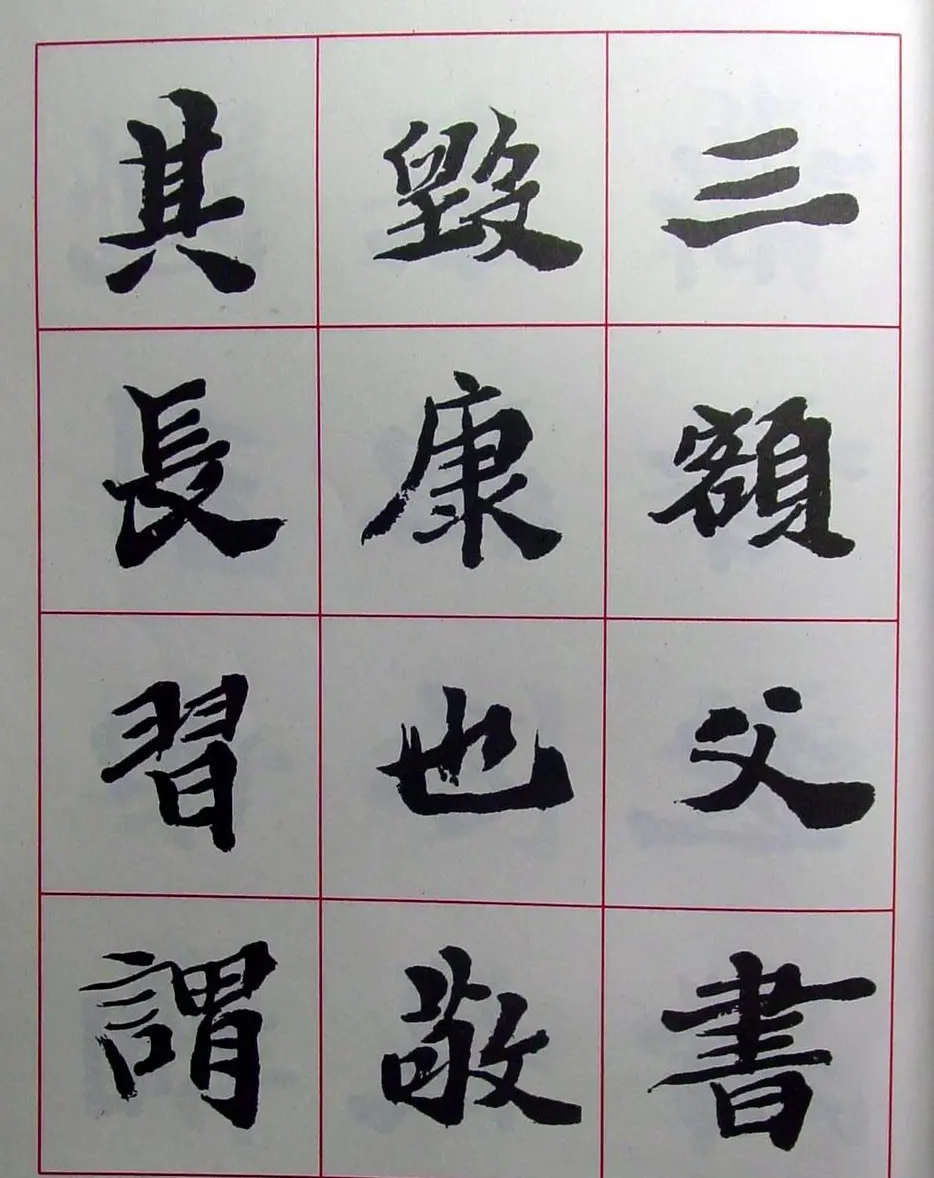 三額父書
毀康也敬
其長習謂